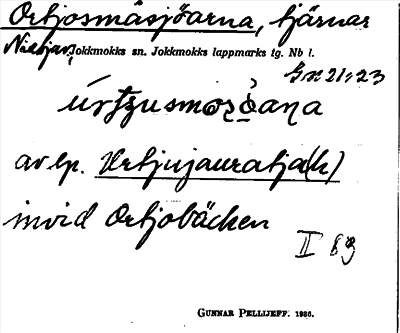 Ortjosmåsjöarna, tjärnar
Jokkmokks sn. Jokkmokks lappmarks tg. Nb l.
Gx 21:23
av lp. Urtjujauratja(h)
invid Ortjobäcken
II 89
GUNNAR PELLIJEFF. 1936.